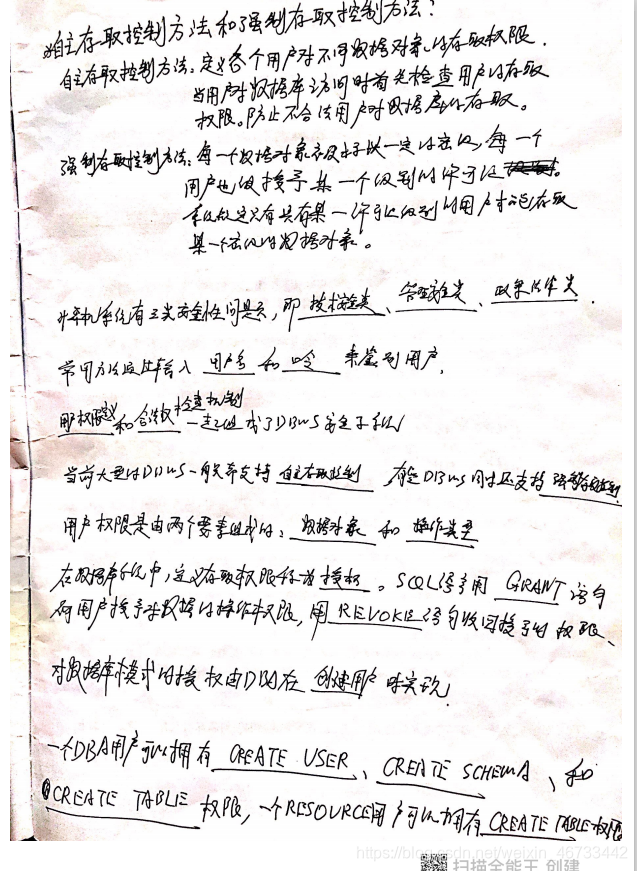 自主存取控制方法和强制存取控制方法?
自主存取控制方法: 定义各个用户对不同数据对象的存取权限.
当用户对数据库访问时首先检查用户的存取
权限。防止不合法用户对数据库的存取。
强制存取控制方法: 每一个数据对象被标以一定的密级, 每一个
用户也被授予某一个级别的许可证
具有某一许可证级别的用户才能存取
某一密级的数据对象。
计算机系统有三类安全性问题, 即 技术安全类、管理安全类、政策法律类.
常用方法是输入 用户名 和 口令 来鉴别用户,
和 合法权检查机制 一起组成了DBMS安全子系统
当前大型的DBMS一般都支持 自主存取控制, 有些DBMS同时还支持 强制存取控制
用户权限是由两个要素组成的: 数据对象 和 操作类型
在数据库系统中, 定义存取权限称为 授权 。SQL语言用 GRANT 语句
向用户授予对数据的操作权限, 用 REVOKE 语句收回授予的权限、
对数据库模式的授权由DBA在 创建用户 时实现.
一个DBA用户可以拥有 CREATE USER、CREATE SCHEMA、和
CREATE TABLE 权限, 一个RESOURCE用户可以拥有 CREATE TABLE 权限
https://blog.csdn.net/weixin_46733442
扫描全能王 创建